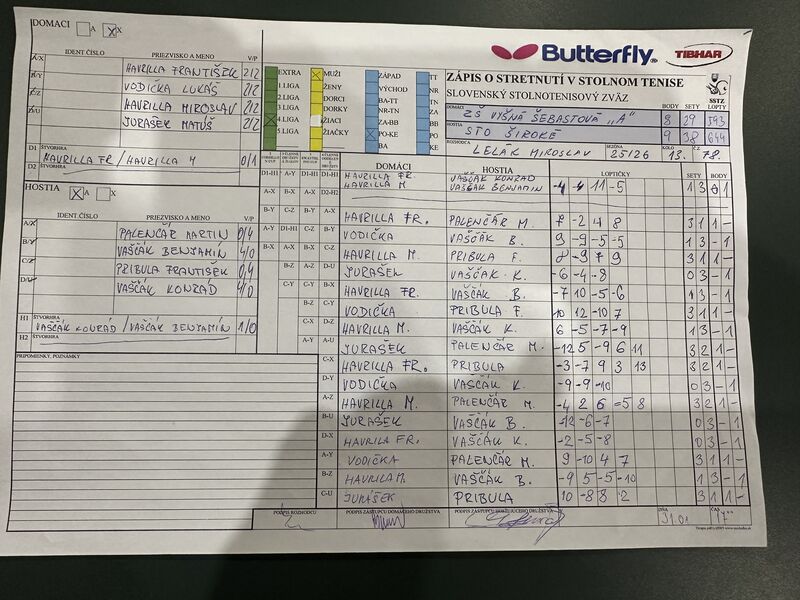 DOMACI A X
IDENT. ČÍSLO PRIEZVISKO A MENO V/P
A/X HAVRILLA FRANTIŠEK 2/2
B/Y VODIČKA LUKÁŠ 2/2
C/Z HAVRILLA MIROSLAV 2/2
D/U JURAŠEK MATÚŠ 2/2
D1 ŠTVORHRA
HAVRILLA FR. / HAVRILLA M 0/1
D2
HOSTIA A X
IDENT. ČÍSLO PRIEZVISKO A MENO V/P
A/X PALENČÁR MARTIN 0/4
B/Y VAŠČÁK BENJAMÍN 4/0
C/Z PRIBULA FRANTIŠEK 0/4
D/U VAŠČÁK KONRÁD 4/0
H1 ŠTVORHRA
VAŠČÁK KONRÁD / VAŠČÁK BENJAMÍN 1/0
H2 ŠTVORHRA
PRIPOMIENKY, POZNÁMKY
EXTRA MUŽI ZÁPAD TT
1.LIGA ŽENY VÝCHOD NR
2.LIGA DORCI BA-TT TN
3.LIGA DORKY TN-NR ZA
4.LIGA ŽIACI ZA-BB BB
5.LIGA ŽIAČKY PO-KE PO
KE KE
BA PO
Butterfly TIBHAR
ZÁPIS O STRETNUTÍ V STOLNOM TENISE
SLOVENSKÝ STOLNOTENISOVÝ ZVÄZ
SSTZ
DOMÁCI ZŠ VYŠNÁ ŠEBASTOVÁ „A" BODY 8 SETY 29 LOPTY 593
HOSTIA STO ŠIROKÉ 9 38 644
ROZHODCA LELÁK MIROSLAV SEZÓNA 25/26 KOLO 13. Č.
DOMÁCI HOSTIA LOPTIČKY SETY BODY
D1-H1 HAVRILLA FR. HAVRILLA M VAŠČÁK KONRAD VAŠČÁK BENJAMIN -4 -4 11 -5 1 3 - 1
D2-H2
HAVRILLA FR. PALENČÁR M. 7 -2 4 8 3 1 1 -
VODIČKA VAŠČÁK B. 9 -9 -5 -5 1 3 - 1
HAVRILLA M. PRIBULA F. 8 -9 7 9 3 1 1 -
JURAŠEK VAŠČÁK K. -6 -4 -8 0 3 - 1
HAVRILLA FR. VAŠČÁK B. -7 10 -5 -6 1 3 - 1
VODIČKA PRIBULA F. -10 12 -10 7
HAVRILLA M. VAŠČÁK K. 6 -5 -7 -9 1 3 - 1
JURAŠEK PALENČÁR M. -12 5 -9 6 11 3 2 1 -
C-X HAVRILLA FR. PRIBULA -3 -7 9 3 13 3 2 1 -
D-Y VODIČKA VAŠČÁK K. -9 -9 -10 0 3 - 1
A-Z HAVRILLA M. PALENČÁR M. -4 2 6 -5 8 3 2 1 -
B-U JURAŠEK VAŠČÁK B. -12 -6 -7 0 3 - 1
D-X HAVRILA FR. VAŠČÁK K. -2 -5 -8 0 3 - 1
A-Y VODIČKA PALENČÁR M. 9 -10 4 7 3 1 1 -
B-Z HAVRILA M. VAŠČÁK B. -9 5 -5 -10 1 3 - 1
C-U JURÁŠEK PRIBULA 10 -8 8 2 3 1 1 -
PODPIS ROZHODCU PODPIS ZÁSTUPCU DOMÁCEHO DRUŽSTVA PODPIS ZÁSTUPCU HOSŤUJÚCEHO DRUŽSTVA DŇA 31.01 ČAS 17⁰⁰